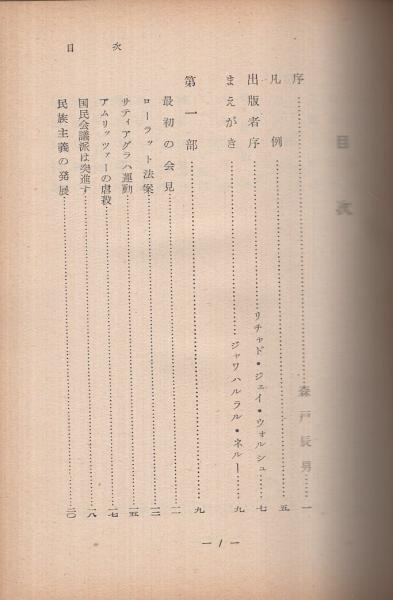 目次
序……森戸辰男…一
凡例……五
出版者序……リチャド・ジェイ・ウォルシュ…七
まえがき……ジャワハルラル・ネルー…九
第一部……九
最初の会見……一一
ローラット法案……一三
サティアグラハ運動……一五
アムリッツァーの虐殺……一七
国民会議派は突進す……一八
民族主義の発展……二〇
目次
— 1 —